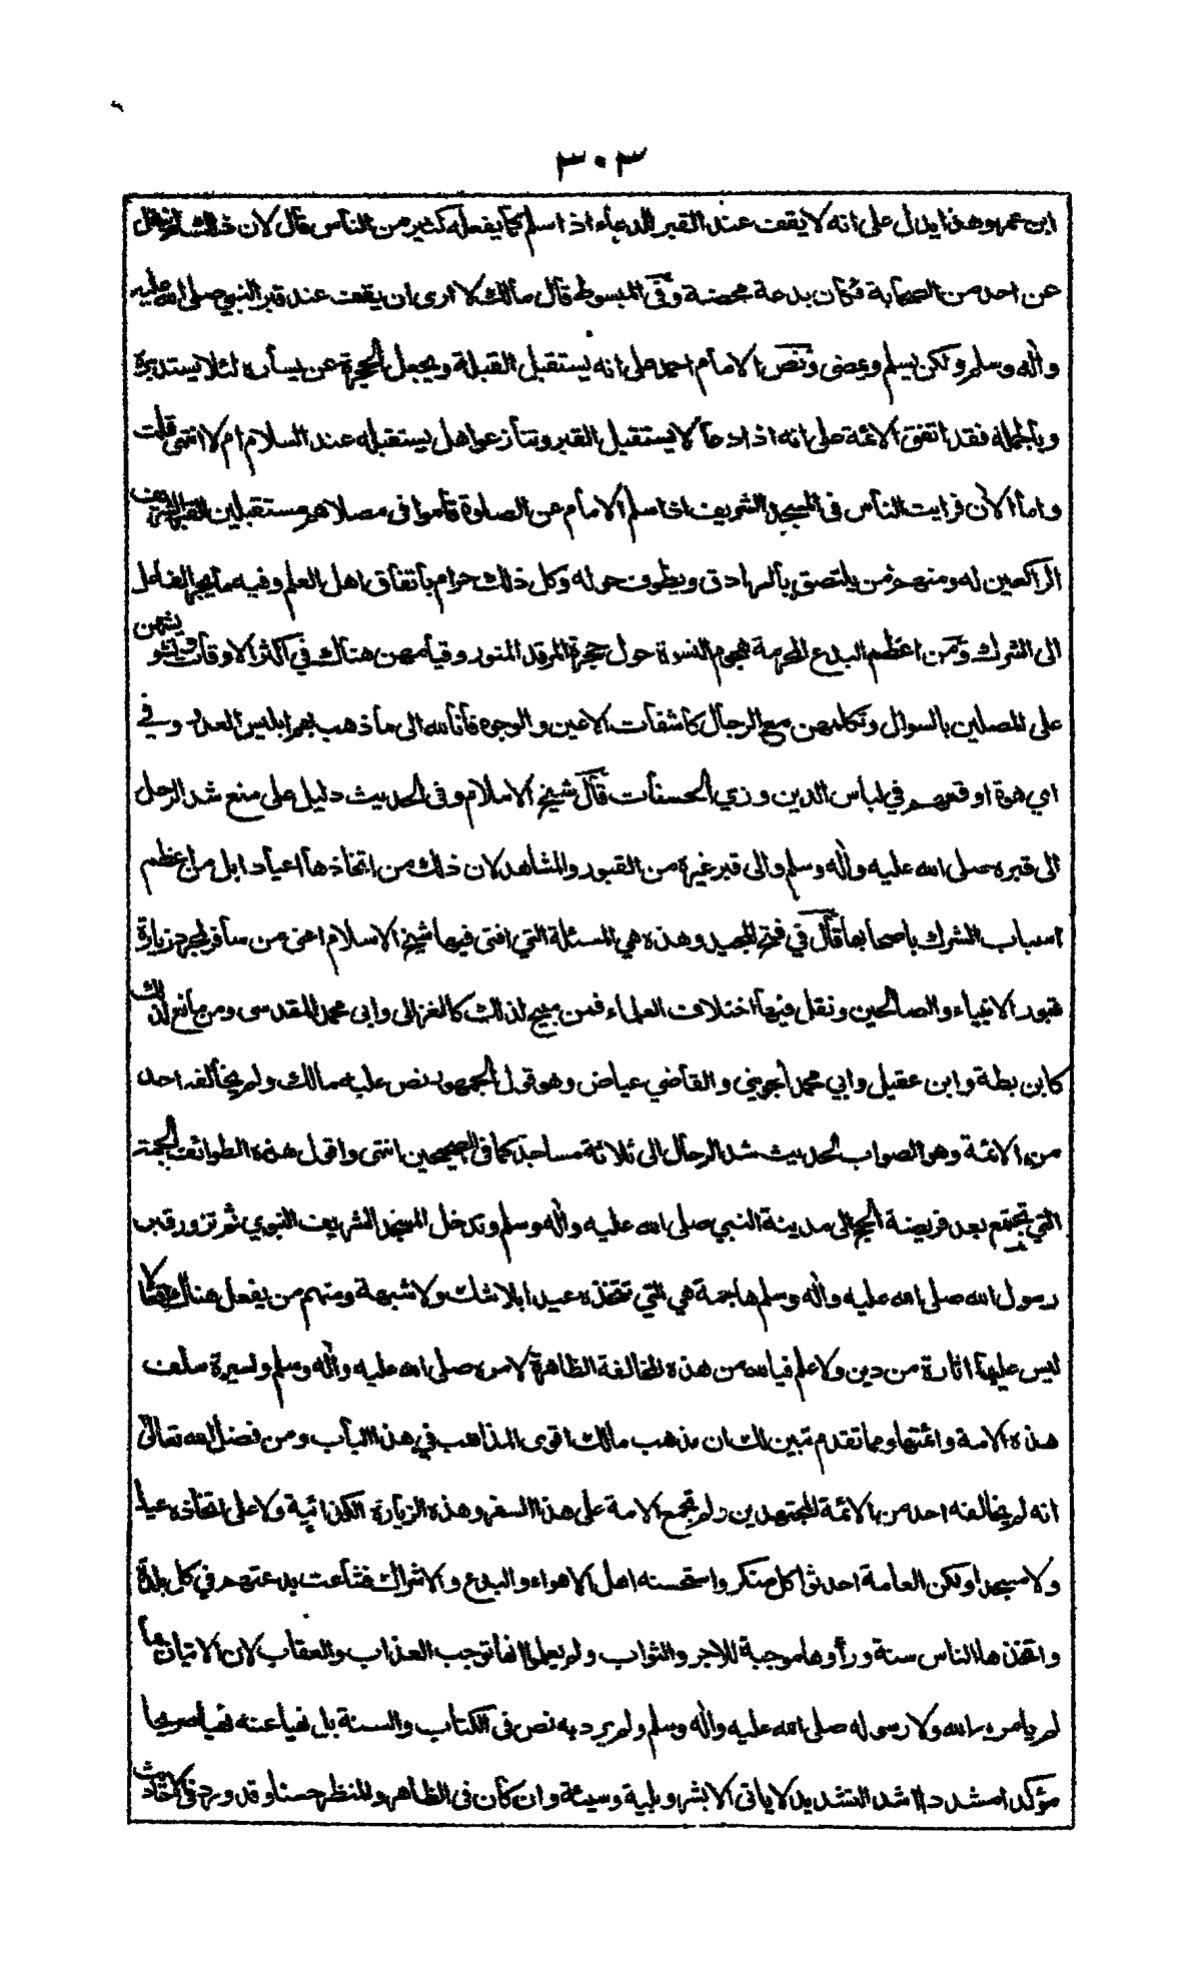 ٣٠٣
ابن عمر وهذا يدل على انه لا يقف عند القبر للدعاء اذا سلم كما يفعله كثير من الناس قال لان ذلك لم ينقل
عن احد من الصحابة فكان بدعة محضة وفى المبسوط قال مالك لا ارى ان يقف عند قبر النبي صلى الله عليه
واله وسلم ولكن يسلم ويمضى ونص الامام احمد على انه يستقبل القبلة ويجعل الحجرة عن يساره لئلا يستدبره
وبالجملة فقد اتفق الائمة على انه اذا دعا لا يستقبل القبر وتنازعوا هل يستقبله عند السلام ام لا انتهى قلت
واما الآن فرايت الناس فى المسجد الشريف اذا سلم الامام عن الصلوة قاموا فى مصلاهم مستقبلين القبر الشريف
الراكعين له ومنهم من يلتصق بالسرادق ويطوف حوله وكل ذلك حرام باتفاق اهل العلم وفيه ما يجر الفاعل
الى الشرك ومن اعظم البدع المحرمة هجوم النسوة حول حجرة المرقد المنور وقيامهن هناك في اكثر الاوقات وتشويشهن
على المصلين بالسوال وتكلمهن مع الرجال كاشفات الاعين والوجوه فانا لله الى ما ذهب بهم ابليس العدو وفي
اي هوة اوقعهم في لباس الدين وزي الحسنات قال شيخ الاسلام وفى الحديث دليل على منع شد الرحل
الى قبره صلى الله عليه واله وسلم والى قبر غيره من القبور والمشاهد لان ذلك من اتخاذها اعيادا بل من اعظم
اسباب الشرك باصحابها قال في فتح المجيد وهذه هي المسئلة التي افتى فيها شيخ الاسلام اعنى من سافر لمجرد زيارة
قبور الانبياء والصالحين ونقل فيها اختلاف العلماء فمن مبيح لذلك كالغزالى وابى محمد المقدسى ومن مانع لذلك
كابن بطة وابن عقيل وابي محمد الجويني والقاضي عياض وهو قول الجمهور نص عليه مالك ولم يخالفه احد
من الائمة وهو الصواب لحديث شد الرحال الى ثلاثة مساجد كما فى الصحيحين انتهى واقول هذه الطوائف الجمة
التي تجتمع بعد فريضة الحج الى مدينة النبي صلى الله عليه واله وسلم وتدخل المسجد الشريف النبوي ثم تزور قبر
رسول الله صلى الله عليه واله وسلم هاجمة هي التي تتخذه عيدا بلا شك ولا شبهة ومنهم من يفعل هناك افعالا
ليس عليها اثارة من دين ولا علم فيالله من هذه المخالفة الظاهرة لامره صلى الله عليه واله وسلم ولسيرة سلف
هذه الامة وائمتها ومما تقدم تبين لك ان مذهب مالك اقوى المذاهب في هذا الباب ومن فضل الله تعالى
انه لم يخالفه احد من الائمة المجتهدين ولم تجمع الامة على هذا السفر وهذه الزيارة الكذائية ولا على اتخاذه عيدا
ولا مسجدا ولكن العامة احدثوا كل منكر واستحسنه اهل الاهواء والبدع والاشراك فشاعت بدعتهم في كل بلدة
واتخذها الناس سنة ورأوها موجبة للاجر والثواب ولم يعلموا انها توجب العذاب والعقاب لان الاتيان بما
لم يامر به الله ولا رسوله صلى الله عليه واله وسلم ولم يرد به نص فى الكتاب والسنة بل نهيا عنه نهيا صريحا
مؤكدا مشددا اشد التشديد لا ياتى الا بشر وبلية وسيئة وان كان فى الظاهر والمنظر حسنا وقد ورد فى الاحاديث